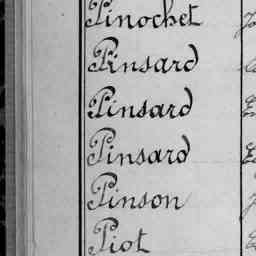 Pinochet
Pinsard
Pinsard
Pinsard
Pinson
Piot